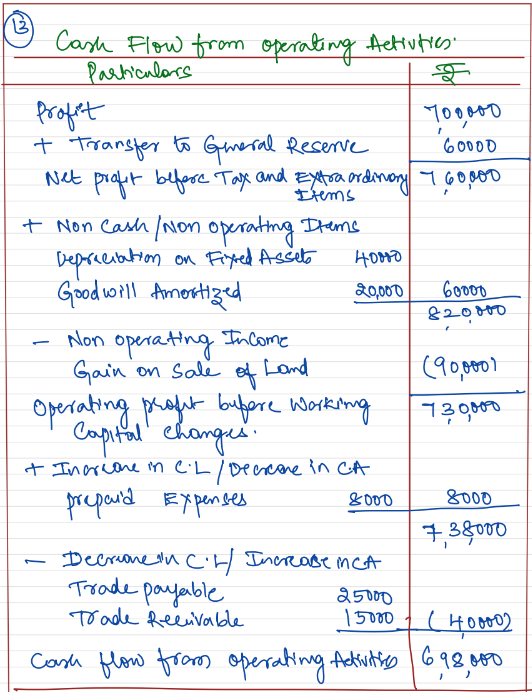 13
Cash Flow from operating Activities.
Particulars ₹
Profit 7,00,000
+ Transfer to General Reserve 60000
Net profit before Tax and Extraordinary 7,60,000
Items
+ Non Cash / Non operating Items
Depreciation on Fixed Assets 40000
Goodwill Amortized 20,000 60000
8,20,000
- Non operating Income
Gain on Sale of Land (90,000)
Operating profit before Working 7,30,000
Capital changes.
+ Increase in C.L / Decrease in CA
prepaid Expenses 8000 8000
7,38,000
- Decrease in C.L / Increase in CA
Trade payable 25000
Trade Receivable 15000 (40000)
Cash flow from operating Activities 6,98,000